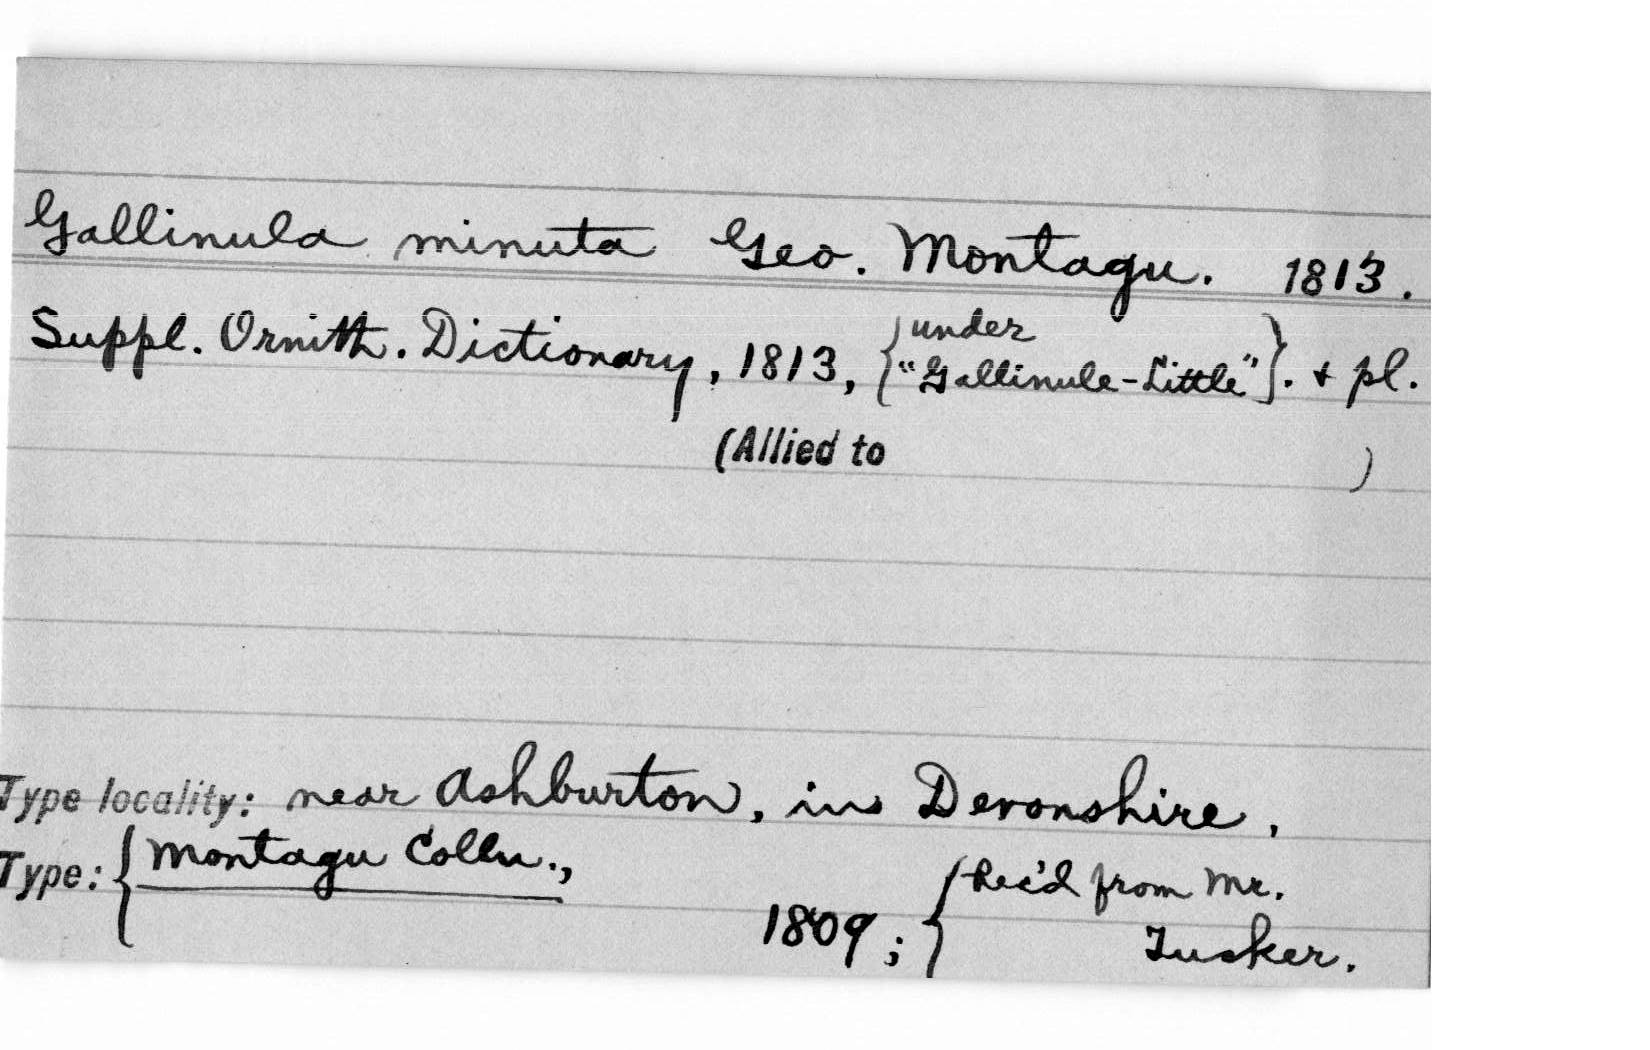 Gallinula minuta Geo. Montagu. 1813.
Suppl. Ornith. Dictionary, 1813, {under "Gallinule-Little"}. + pl.
(Allied to )
Type locality: near Ashburton, in Devonshire.
Type: {Montagu Colln.,
1809; {Rec'd from Mr.
Tusker.